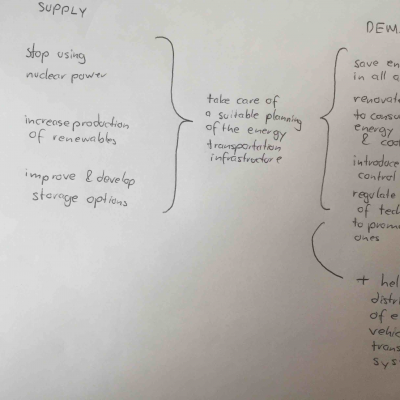 SUPPLY
stop using
nuclear power
increase production
of renewables
improve & develop
storage options
take care of
a suitable planning
of the energy
transportation
infrastructure
save
in all
renovate
energy
&
introduce
control
regulate
of
to
ones
+
of